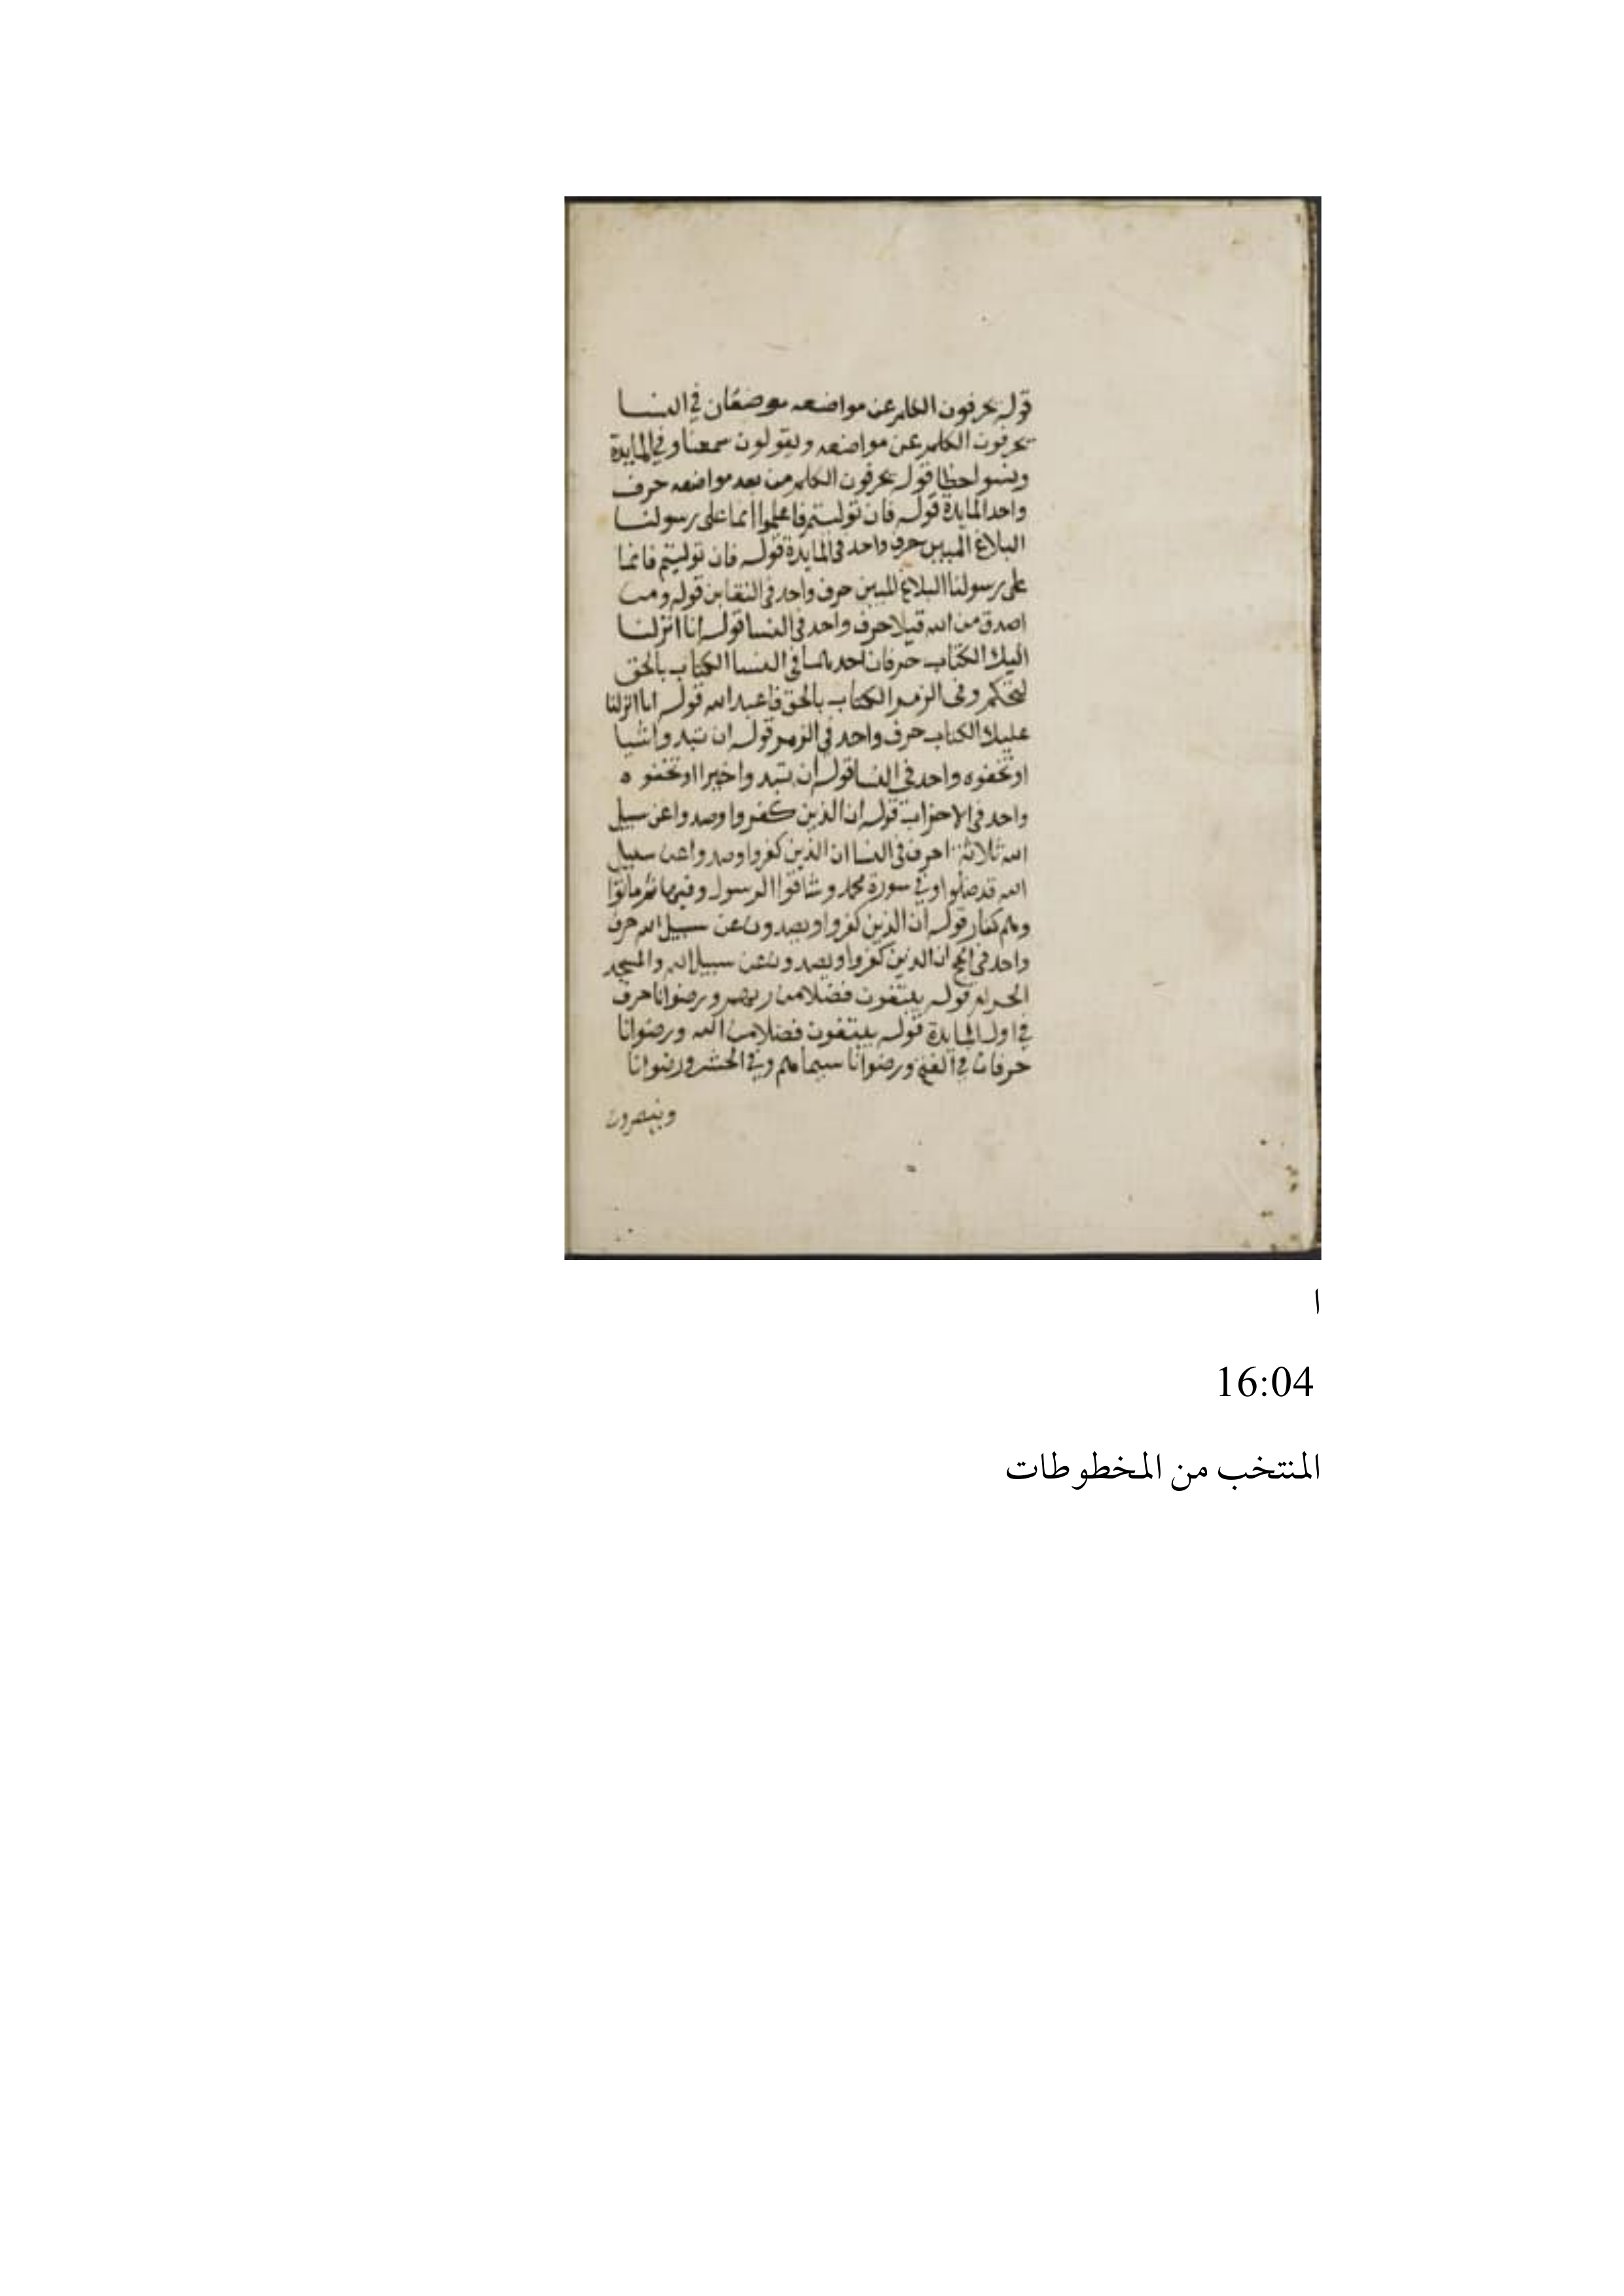 قوله يحرفون الكلم عن مواضعه موضعان في النسا
يحرفون الكلم عن مواضعه ويقولون سمعنا وفي المايدة
ونسوا حظا قوله يحرفون الكلم من بعد مواضعه حرف
واحد المايدة قوله فان توليتم فاعلموا انما على رسولنا
البلاغ المبين حرف واحد في المايدة قوله فان توليتم فانما
على رسولنا البلاغ المبين حرف واحد في التغابن قوله ومن
اصدق من الله قيلا حرف واحد في النسا قوله انا انزلنا
اليك الكتاب حرفان احدهما في النسا الكتاب بالحق
لتحكم وفي الزمر الكتاب بالحق فاعبد الله قوله انا انزلنا
عليك الكتاب حرف واحد في الزمر قوله ان تبدوا شيا
او تخفوه واحد في النسا قوله ان تبدوا خيرا او تخفوه
واحد في الاحزاب قوله ان الذين كفروا وصدوا عن سبيل
الله ثلاثة احرف في النسا ان الذين كفروا وصدوا عن سبيل
الله قد ضلوا وفي سورة محمد وشاقوا الرسول وفيها ثم ماتوا
وهم كفار قوله ان الذين كفروا ويصدون عن سبيل الله حرف
واحد في الحج ان الذين كفروا ويصدون عن سبيل الله والمسجد
الحرام قوله يبتغون فضلا من ربهم ورضوانا حرف
في اول المايدة قوله يبتغون فضلا من الله ورضوانا
حرفان في الفتح ورضوانا سيماهم وفي الحشر ورضوانا
وينصرون
ا
16:04
المنتخب من المخطوطات